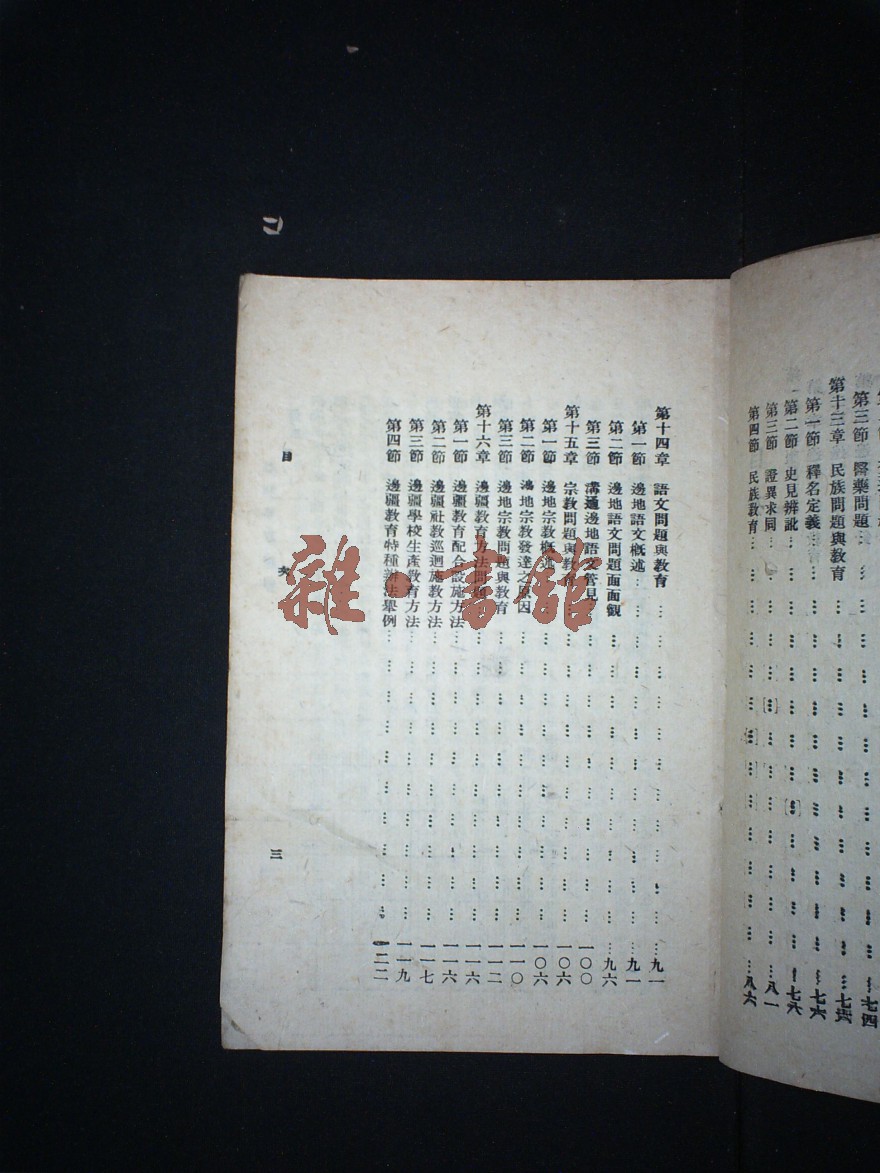 第三節 醫藥問題 七四
第十三章 民族問題與教育 七六
第一節 釋名定義 七六
第二節 史見辨訛 七八
第三節 證異求同 八一
第四節 民族教育 八六
第十四章 語文問題與教育 九一
第一節 邊地語文概述 九一
第二節 邊地語文問題面面觀 九六
第三節 溝通邊地語文管見 一〇〇
第十五章 宗教問題與教育 一〇六
第一節 邊地宗教概述 一〇六
第二節 邊地宗教發達之原因 一一〇
第三節 邊地宗教問題與教育 一一二
第十六章 邊疆教育方法問題 一一六
第一節 邊疆教育配合設施方法 一一六
第二節 邊疆社教巡迴施教方法 一一七
第三節 邊疆學校生產教育方法 一一九
第四節 邊疆教育特種辦法舉例 一二二
目 次
三
雜·書館